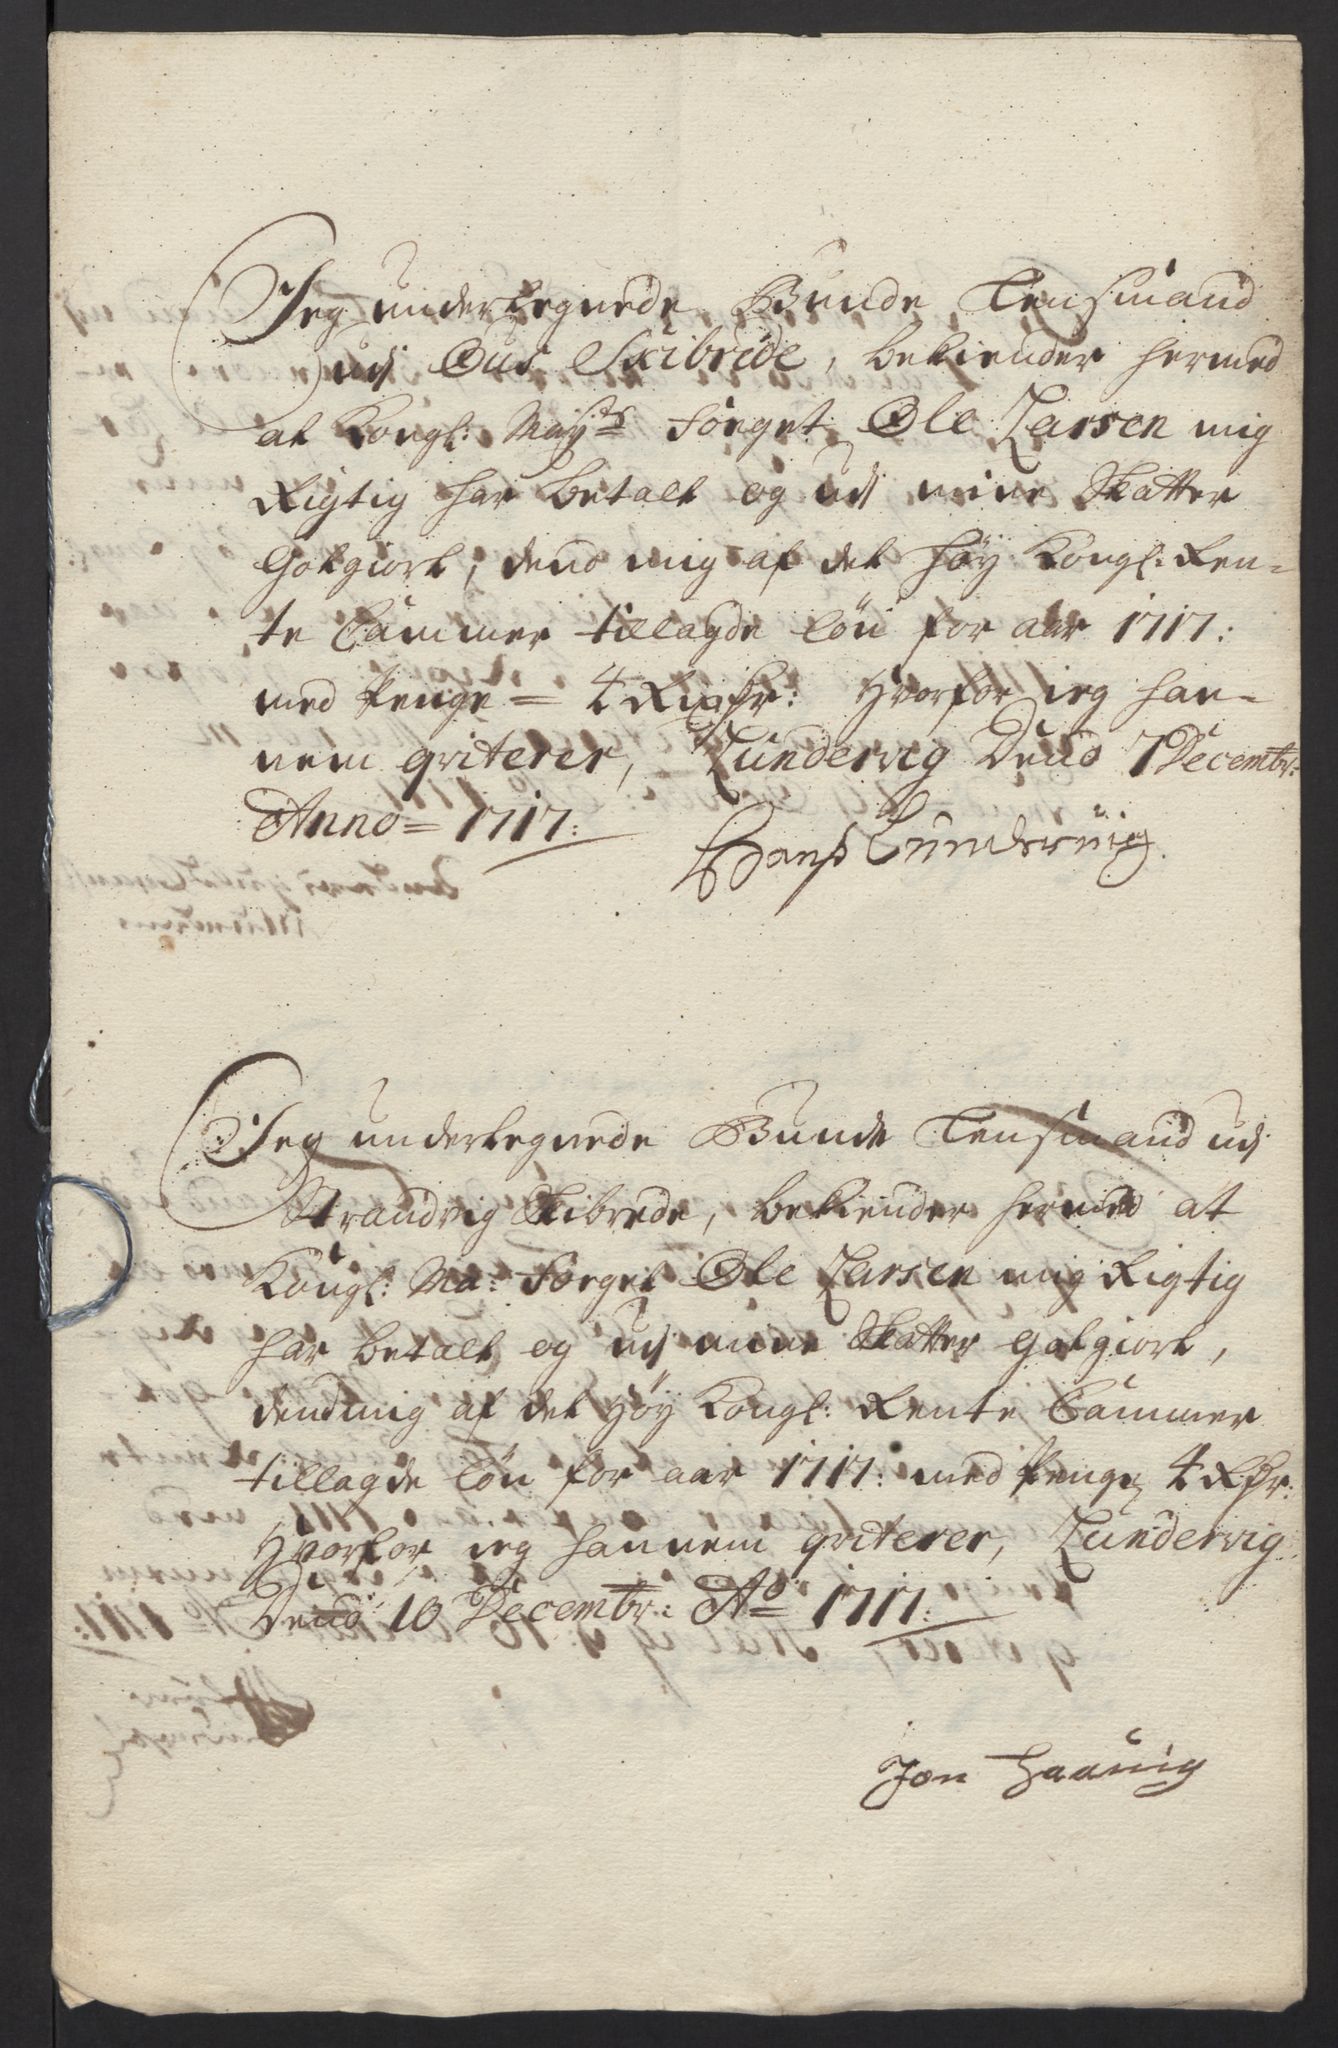 Jeg undertegnede Bunde Lensmand
udj Ous Skibrede, bekiender hermed
at Kongl: Mayts: Foget Ole Larsen mig
Rigtig har betalt og udj mine Skatter
Gotgiort, dend mig af det høy Kongl: Ren-
te Cammer tillagde løn for aar 1717:
med Penge = 4 Rixdr: hvorfor ieg han-
nem qviterer, Lundervig Dend 7 Decembr:
Anno = 1717:
Hans Lunderuig
Jeg undertegnede Bunde Lensmand udj
Strandvig Skibrede, bekiender hermed at
Kongl: Ma: Foget Ole Larsen mig Rigtig
har betalt og udj mine Skatter Gotgiort,
dend mig af det høy Kongl: Rente Cammer
tillagde løn for aar 1717: med Penge 4 Rdr:
hvorfor ieg hannem qviterer, Lundervig
Dend 10 Decembr: Ao 1717:
Jon Haauig